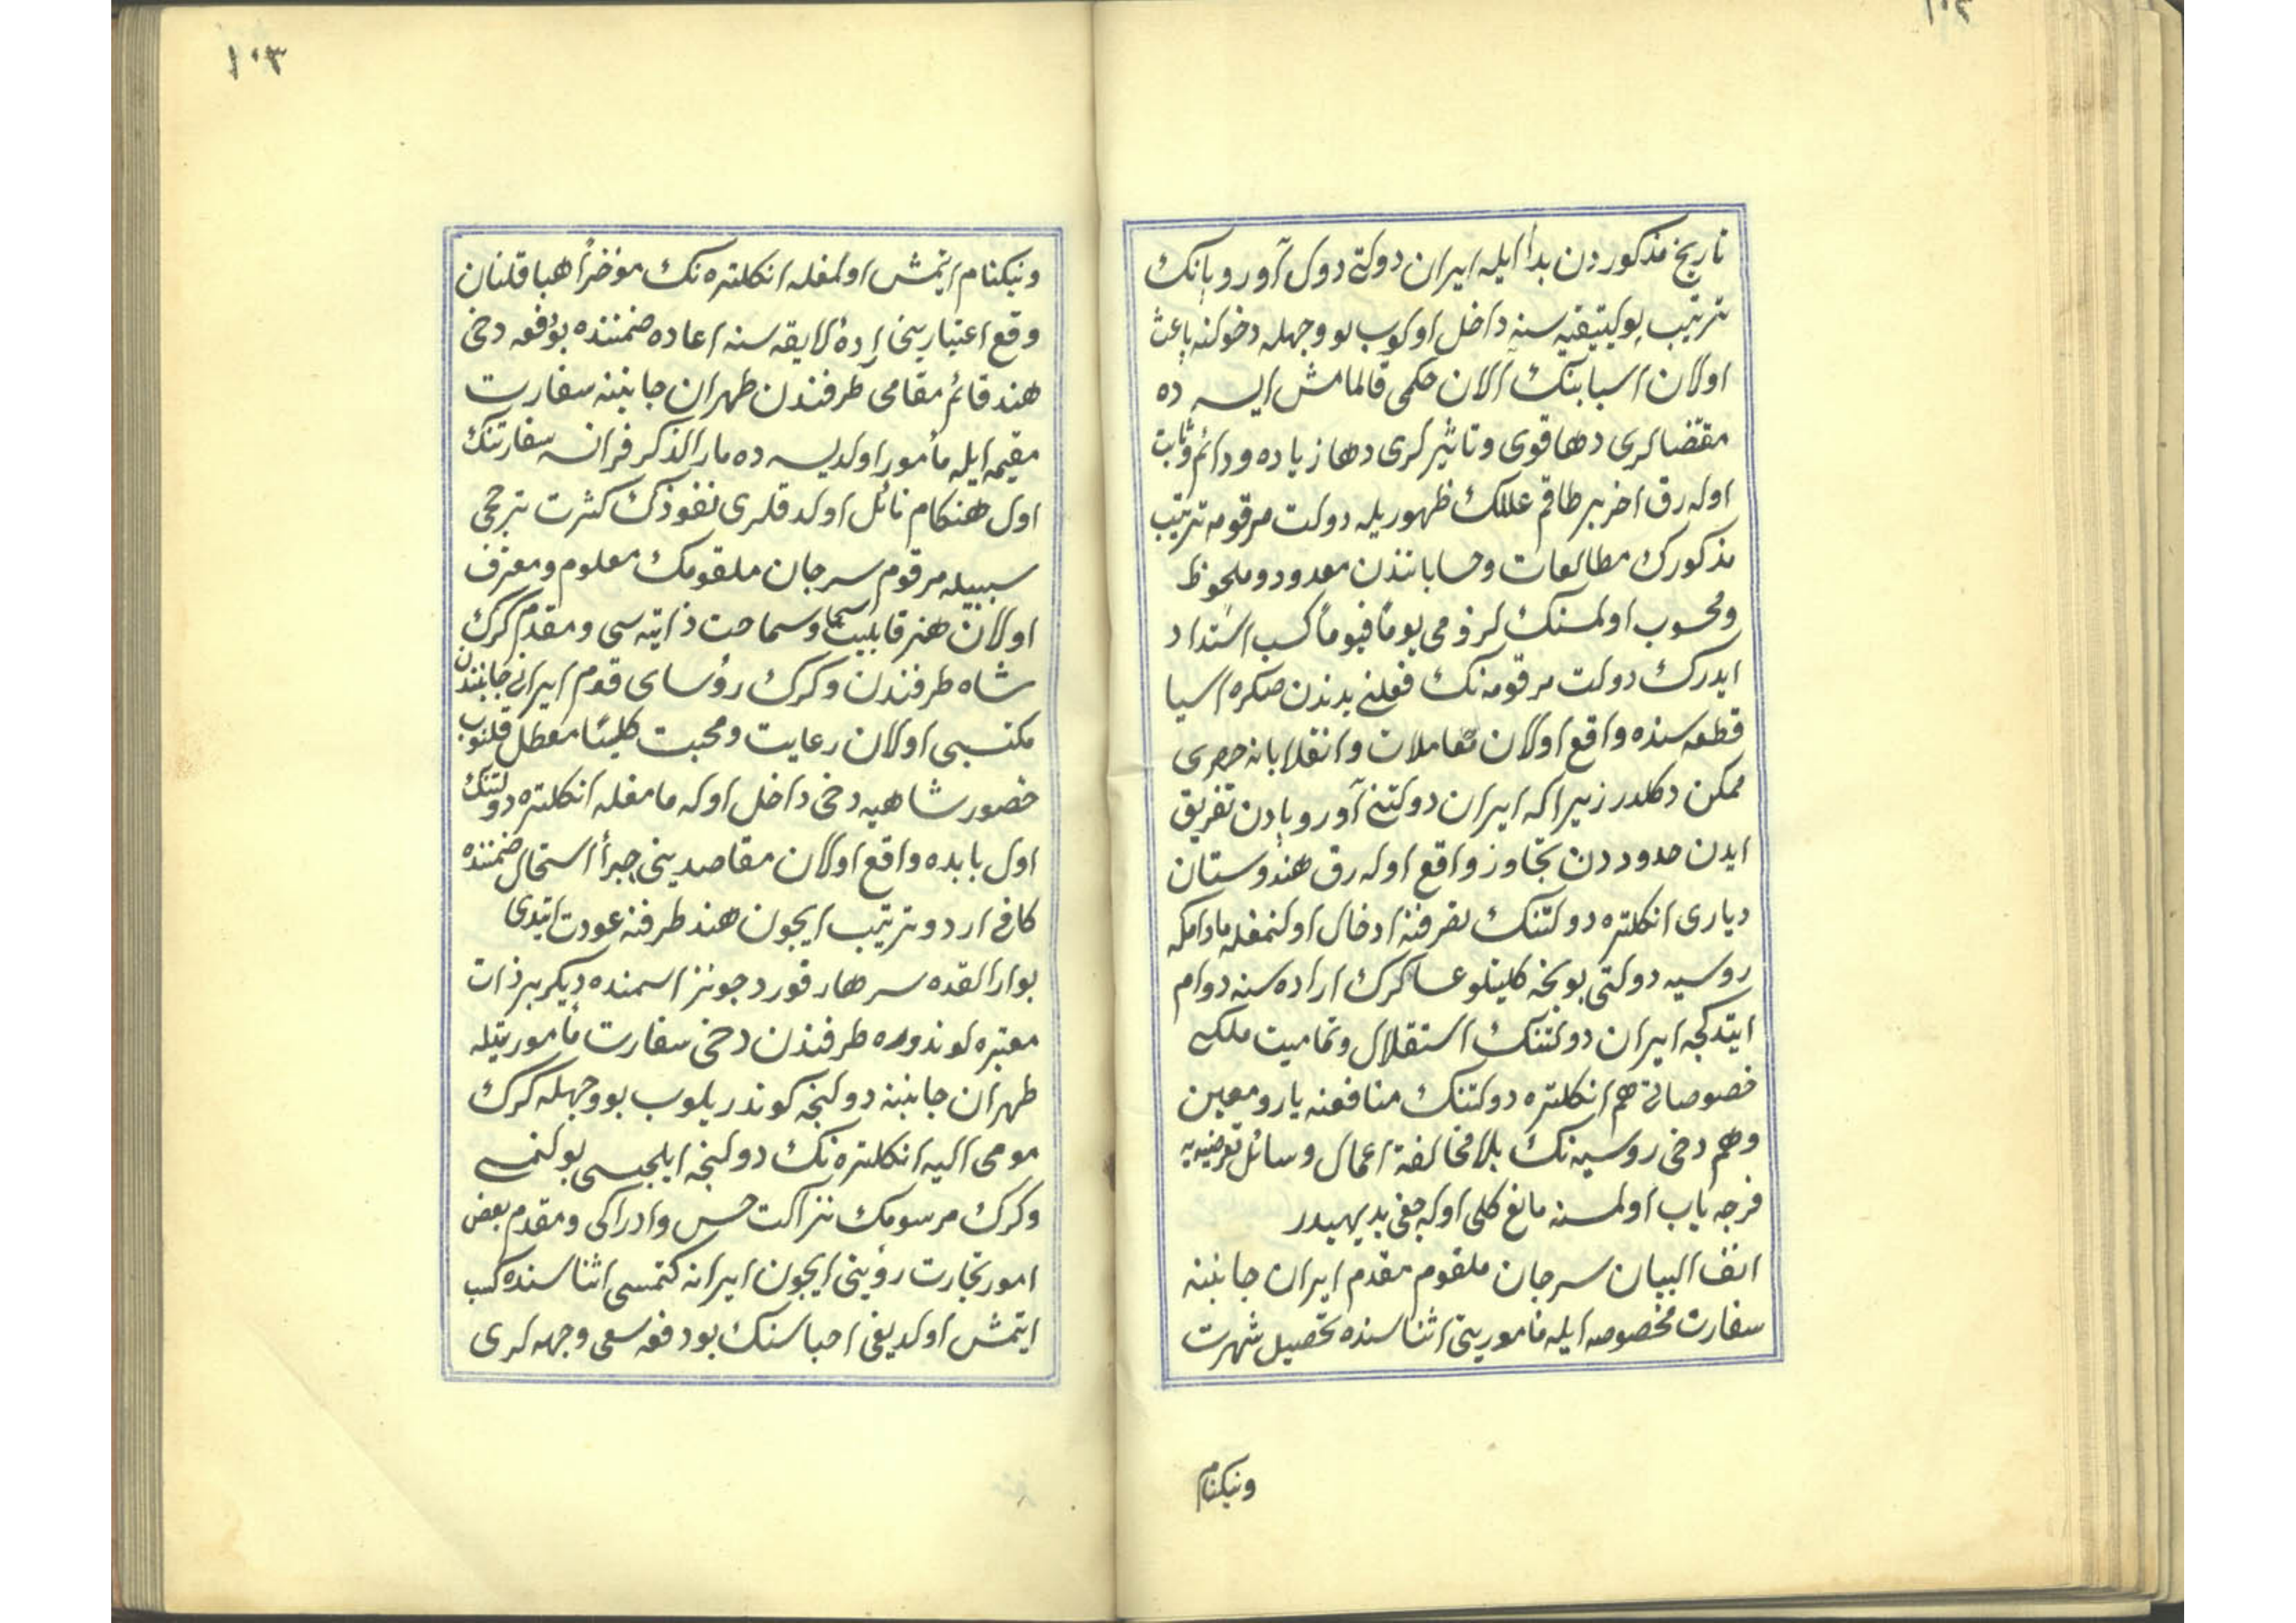 ١٠٢
تاريخ مذكوردن بدأ ايله ايران دولتى دول آوروپانك
ترتيب پوليتيقيه سنه داخل اولوب بو وجهله دخولنه باعث
اولان اسبابنك الآن حكمى قالمامش ايسه ده
مقتضالرى دها قوى و تاثيرلرى دها زياده و دائم و ثابت
اوله رق اخر بر طاقم عللك ظهوريله دولت مرقومه ترتيب
مذكورك مطالعات و حساباتندن معدود و ملحوظ
و محسوب اولمسنك لزومى يوماً فيوماً كسب اشتداد
ايدرك دولت مرقومه نك فعلنى بدندن صكره اسيا
قطعه سنده واقع اولان معاملات و انقلاباته حصرى
ممكن دكلدر زيرا كه ايران دولتنى آوروپادن تفريق
ايدن حدوددن تجاوز واقع اوله رق هندوستان
ديارى انكلتره دولتنك تصرفنه ادخال اولنمغله مادامكه
روسيه دولتى بونجه كليتلو عساكرك اراده سنه دوام
ايتدكجه ايران دولتنك استقلال و تماميت ملكى
خصوصاتى هم انكلتره دولتنك منافعنه يار و معين
و هم دخى روسيه نك بلا مخالفة اعمال وسائل تعرضيه يه
فرجه ياب اولمسنه مانع كلى اوله جغى بديهيدر
انف البيان سرجان ملقوم مقدم ايران جانبنه
سفارت مخصوصه ايله مأموريتى اثناسنده تحصيل شهرت
ونيكنام
١٠٣
ونيكنام ايتمش اولمغله انكلتره نك مؤخراً هبا قلنان
وقع اعتبارينى رادۀ لايقه سنه اعاده ضمننده بو دفعه دخى
هند قائم مقامى طرفندن طهران جانبنه سفارت
مقيمه ايله مأمور اولديسه ده مار الذكر فرانسه سفارتنك
اول هنكام نائل اولدقلرى نفوذك كثرت ترجحى
سببيله مرقوم سرجان ملقومك معلوم و معترف
اولان هنر قابليت اسما و سماحت ذاتيه سى و مقدم كرك
شاه طرفندن و كرك رؤساى قوم ايرانى جانبندن
مكتسبى اولان رعايت و محبت كليتاً معطل قلنوب
حضور شاهيه دخى داخل اوله مامغله انكلتره دولتنك
اول بابده واقع اولان مقاصدينى جبراً استحصال ضمننده
كافى اردو ترتيب ايچون هند طرفنه عودت ايتدى
بو ارالقده سر هارفورد جونز اسمنده ديكر بر ذات
معتبره لوندوره طرفندن دخى سفارت مأموريتيله
طهران جانبنه دولتجه كوندريلوب بو وجهله كرك
مومى اليه انكلتره نك دولتجه ايلچيسى بولنمسى
و كرك مرسومك نزاكت حس و ادراكى و مقدم بعض
امور تجارت رؤيتى ايچون ايرانه كتمسى اثناسنده كسب
ايتمش اولديغى احباسنك بو دفعه سعى و جهدلرى